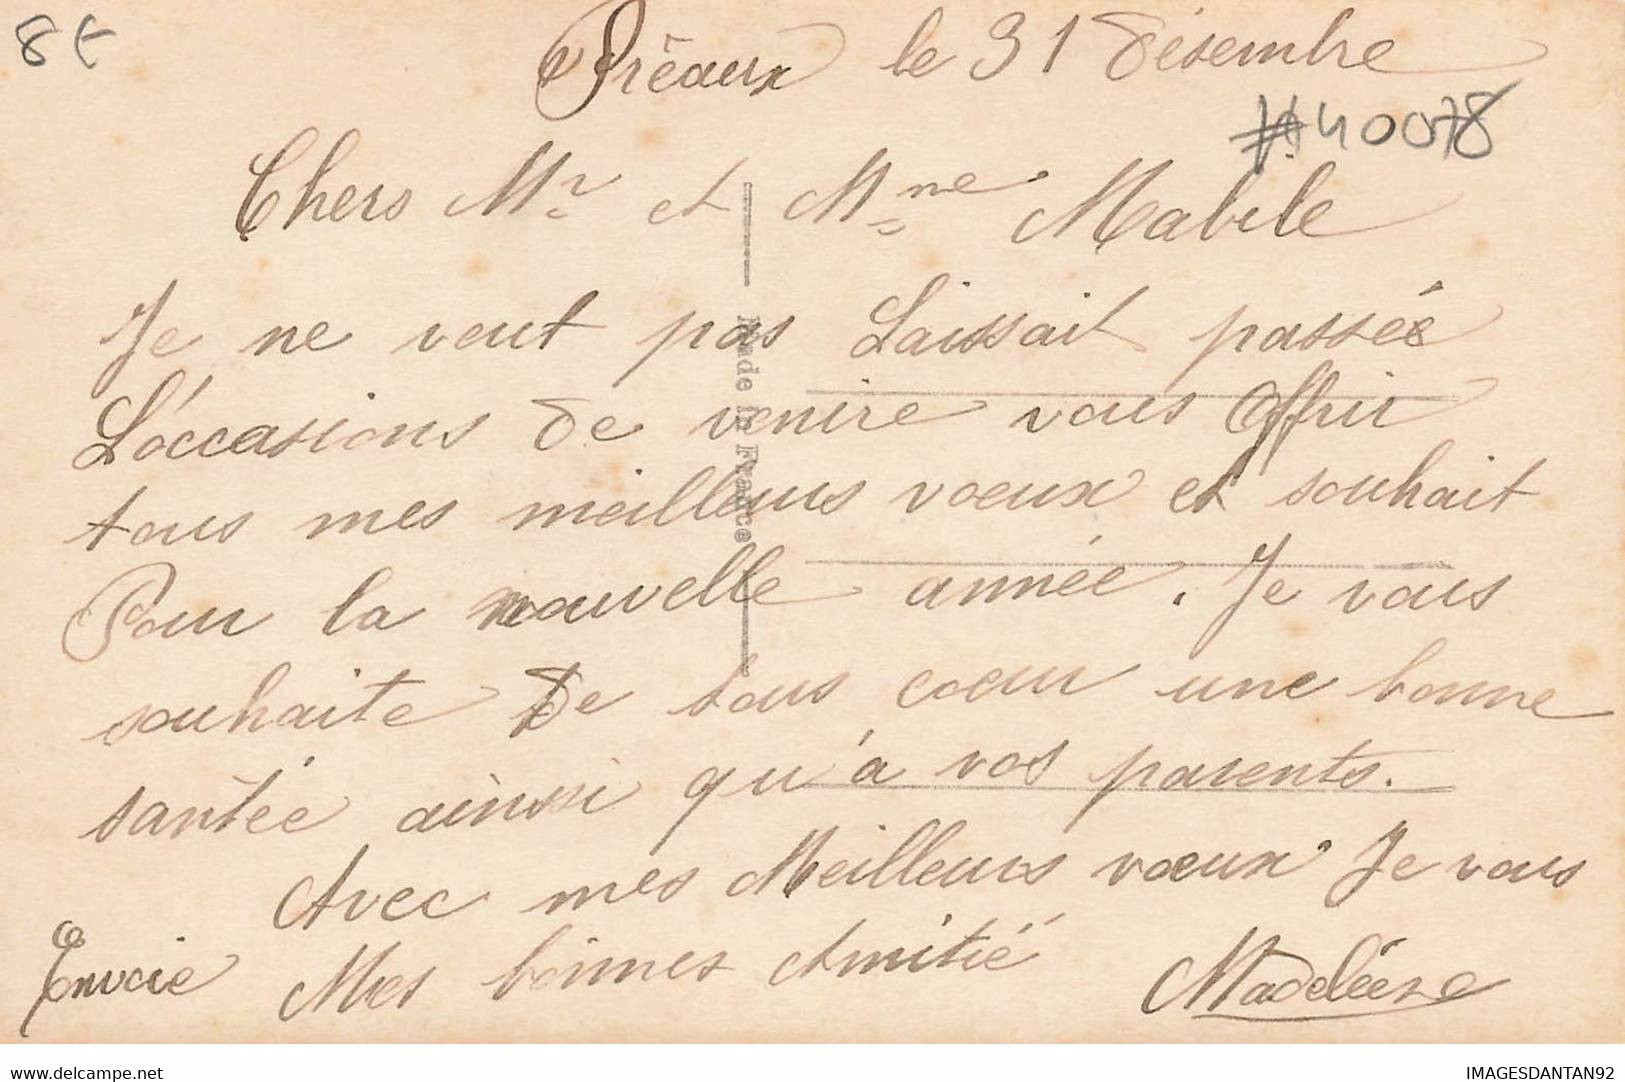 8€
Préaux le 31 désembre
#40078
Chers Mr et Mme Mabile
Je ne veut pas Laissait passée
L'occasions de venire vous Offrir
tous mes meilleurs voeux et souhait
Pour la nouvelle année. Je vous
souhaite de tous coeur une bonne
santée ainssi qu'à vos parents.
Avec mes Meilleurs voeux Je vous
Envoie Mes bonnes Amitié Madeleine
Made in France
delcampe.net
IMAGESDANTAN92